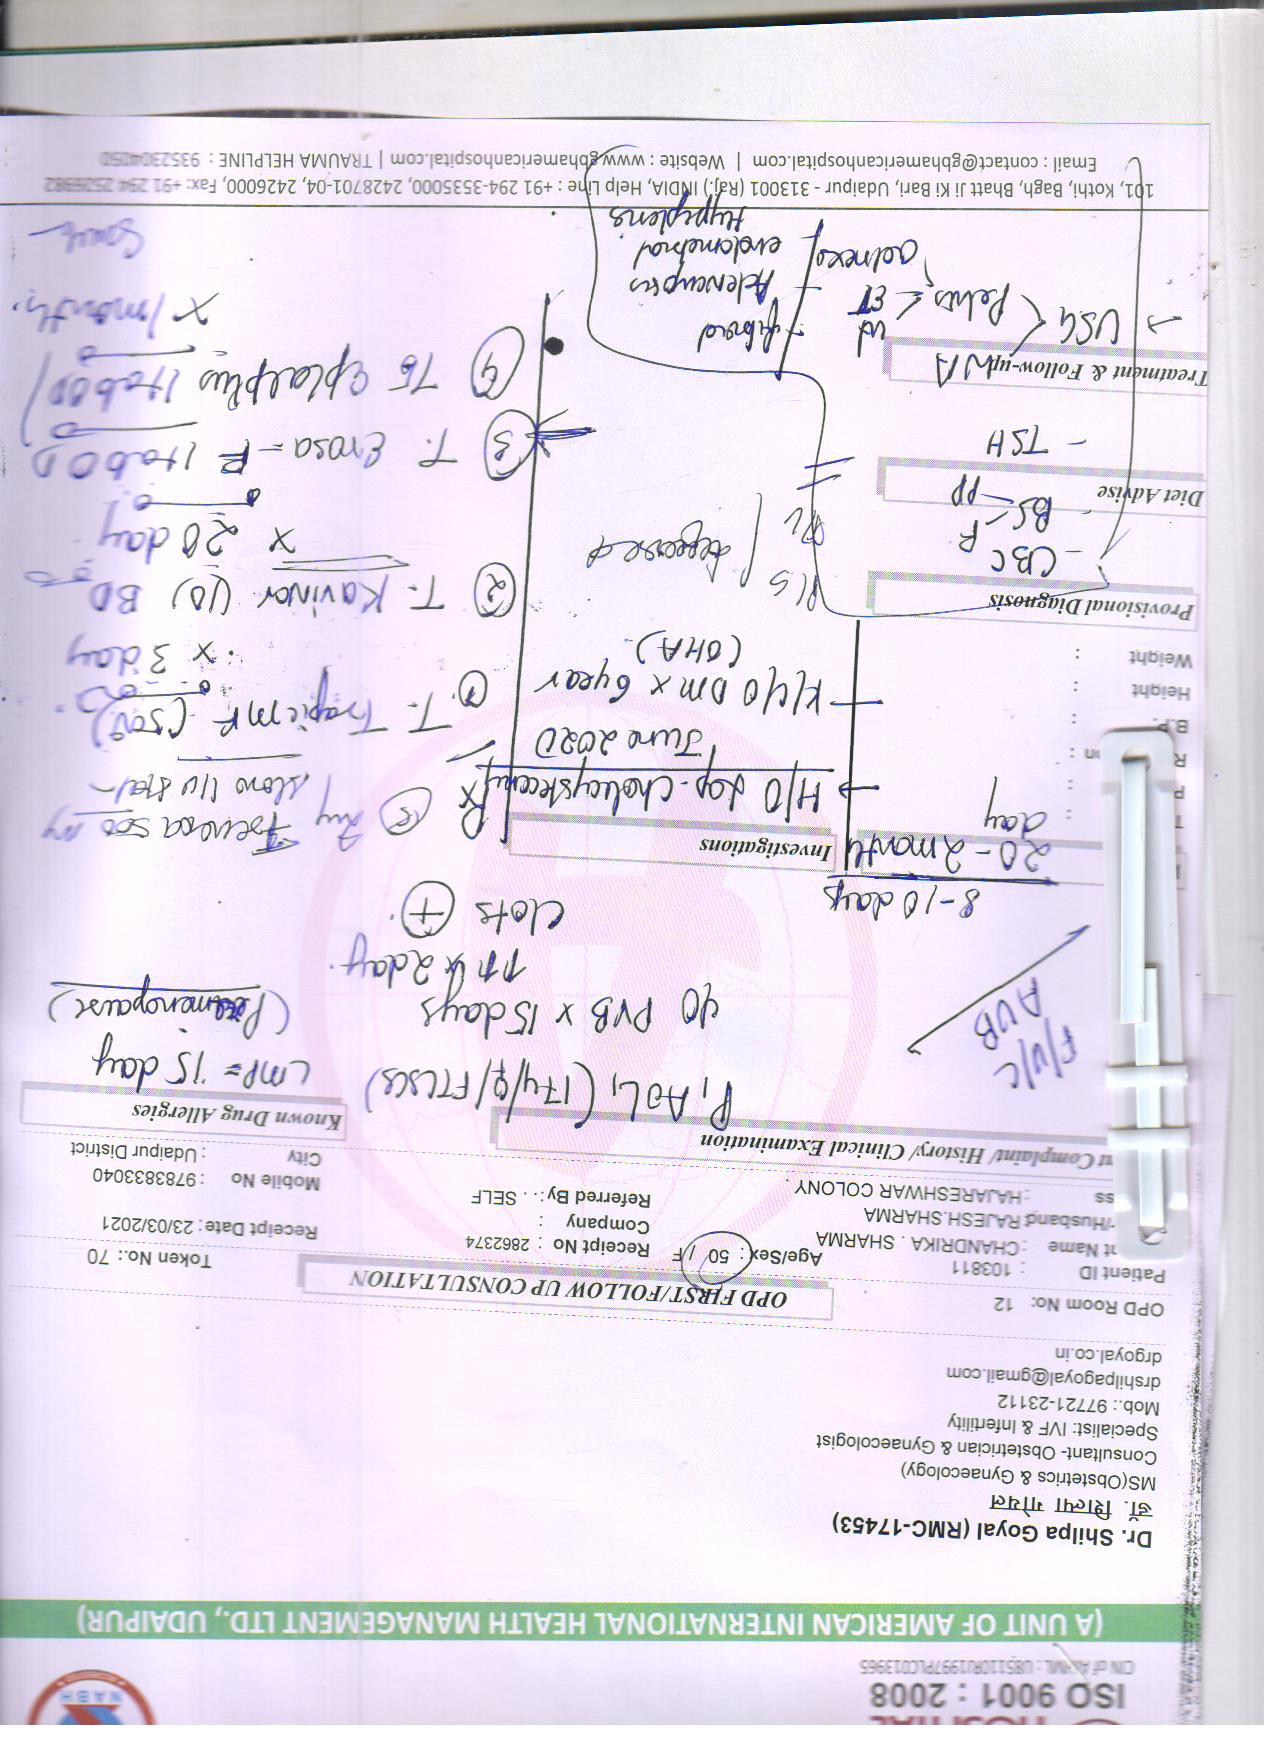 ISO 9001 : 2008
NABH
CIN of AIHML : U85110RJ1997PLC013965
(A UNIT OF AMERICAN INTERNATIONAL HEALTH MANAGEMENT LTD., UDAIPUR)
Dr. Shilpa Goyal (RMC-17453)
डॉ. शिल्पा गोयल
MS(Obstetrics & Gynaecology)
Consultant- Obstetrician & Gynaecologist
Specialist: IVF & Infertility
Mob.: 97721-23112
drshilpagoyal@gmail.com
drgoyal.co.in
OPD Room No: 12
OPD FIRST/FOLLOW UP CONSULTATION
Token No.: 70
Patient ID : 103811
Age/Sex : 50 / F
Receipt No : 2862374
Receipt Date : 23/03/2021
nt Name : CHANDRIKA . SHARMA
Company :
Mobile No : 9783833040
/Husband : RAJESH.SHARMA
Referred By : . . SELF
City : Udaipur District
ss : HAJARESHWAR COLONY .
nt Complaint/ History/ Clinical Examination
Known Drug Allergies
F/U/C
AUB
P1 A0 L1 (17y/♀/FTLSCS)
LMP = 15 day
(Perimenopause)
C/O PVB x 15 days
↑↑ x 2 day.
Clots +
8-10 days
20 - 2 month
day
Investigations
→ H/O Lap. Cholecystectomy
June 2020
K/C/O DM x 6 year
(OHA)
B.P. :
Height :
Weight :
Provisional Diagnosis
- CBC
- BS F
PP
- TSH
Diet Advise
P/S
deferred
Treatment & Follow-up
→ USG
Pelvis
ut
ET
adnexa
- fibroid
- Adenomyosis
- endometrial
Hyperplasia
Rx
slow I/V stat
① T. Trapic MF (500)
x 3 day
② T. Kavinor (10) BD
x 20 day
③ 1 tab OD
④ 1 tab OD
x 1 month
101, Kothi, Bagh, Bhatt Ji Ki Bari, Udaipur - 313001 (Raj.) INDIA, Help Line : +91 294-3535000, 2428701-04, 2426000, Fax: +91 294 2526982
Email : contact@gbhamericanhospital.com | Website : www.gbhamericanhospital.com | TRAUMA HELPLINE : 9352304050